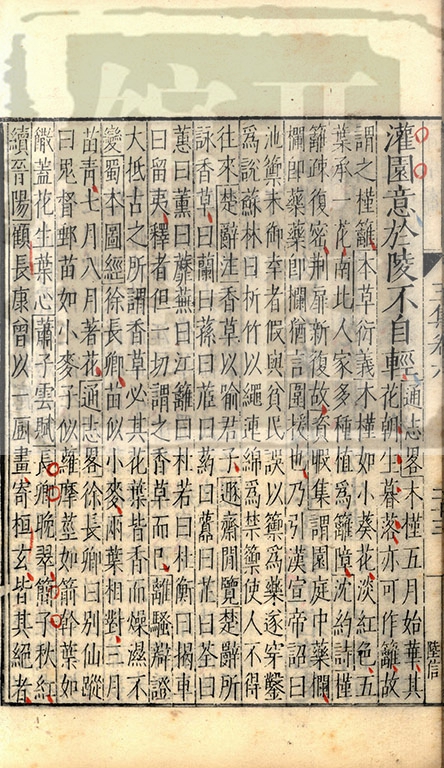 灌園意於陵不自輕通志畧木槿五月始華其花朝生暮落亦可作籬故
謂之槿籬本草衍義木槿如小葵花淡紅色五
葉承一花南北人家多種植爲籬障沈約詩槿
籬疎復密荆扉新復故資暇集謂園庭中藥欄
欄即藥藥即欄猶言圍援也乃引漢宣帝詔曰
池籞未御幸者假與貧民誤以籞爲藥遂穿鑿
爲說蘇林曰折竹以繩連綿爲禁籞使人不得
往來楚辭注香草以喻君子遯齋閒覽楚辭所
詠香草曰蘭曰蓀曰茝曰葯曰虈曰芷曰荃曰
蕙曰薰曰蘼蕪曰江籬曰杜若曰杜蘅曰揭車
曰留夷釋者但一切謂之香草而已離騷辯證
大抵古之所謂香草必其花葉皆香而燥濕不
變蜀本圖經徐長卿苗似小麥兩葉相對三月
苗青七月八月著花通志畧徐長卿曰別仙蹤
曰鬼督郵苗如小麥子似蘿摩莖如箭簳葉如
繖蓋花生葉心蕭子雲賦長卿晚翠簡子秋紅
續晉陽顧長康曾以一厨畫寄桓玄皆其絕者
陸信